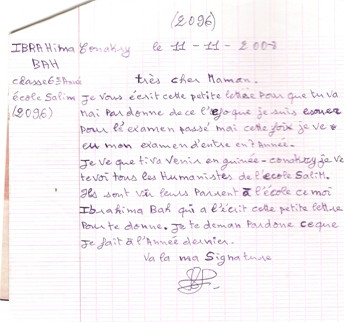 (2096)
IBRAHima Conakry le 11-11-2008
BAH
classe 6e Année très cher Maman.
école Salim Je vous écrit cette petite lettre Pour que tu va
(2096) mai Pardonne de ce l'ejo que je suis
Pour lé examen passé mai cette foix je ve
eu mon examen d'entre en 7 Année.
Je ve que tiva Venir en guinée-conakry je ve
te voi tous les Humanistes de l'ecole SaliM.
ils sont vin leurs Parrent à l'école ce moi
Ibrahima Bah qui a l'écrit cette petite lettre
Pour te donne. Je te deman Pardone ce que
Je fait à l'Année dernier.
Va la ma Signature